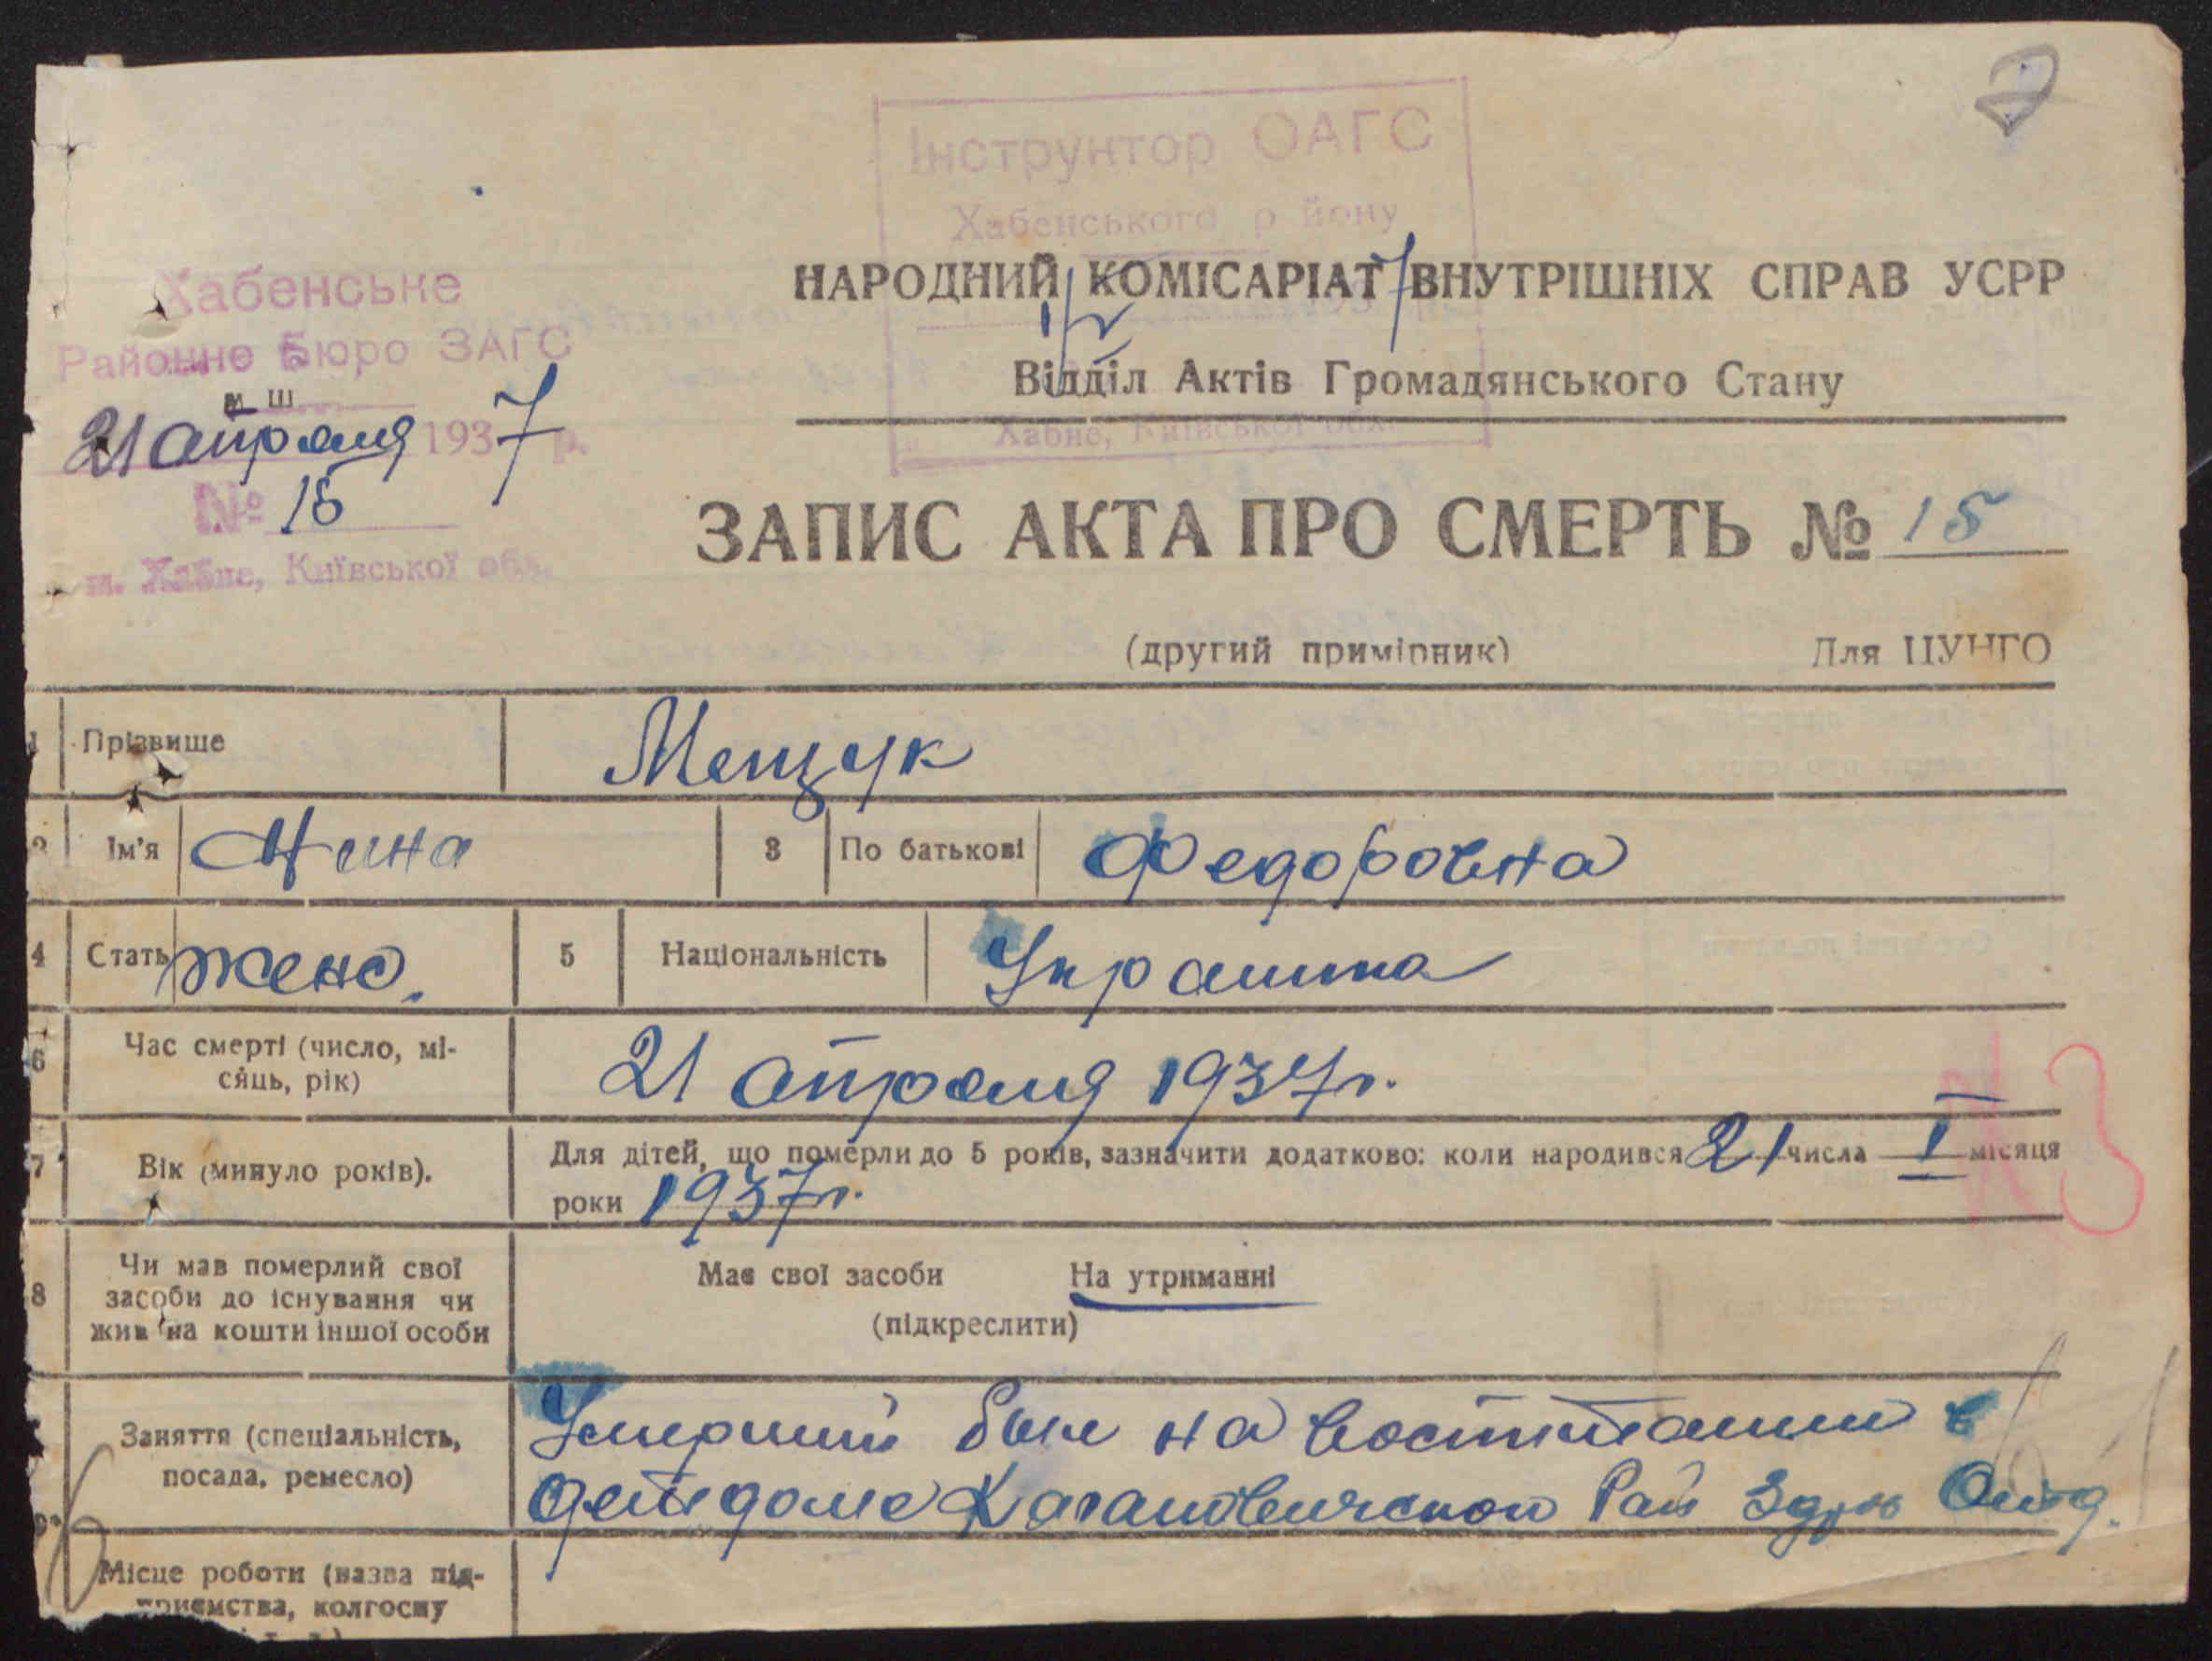 Інструктор ОАГС
Хабенського р йону
Хабенське
Районне Бюро ЗАГС
21 апреля 1937 р.
№ 15
м. Хабне, Київської обл.
НАРОДНИЙ КОМІСАРІАТ ВНУТРІШНІХ СПРАВ УСРР
Відділ Актів Громадянського Стану
Хабне, Київської обл.
ЗАПИС АКТА ПРО СМЕРТЬ № 15
(другий примірник) Для ЦУНГО
1 Прізвище Мещук
2 Ім'я Нина 3 По батькові Федоровна
4 Стать женс. 5 Національність Украинка
6 Час смерті (число, мі-
сяць, рік) 21 апреля 1937 г.
7 Вік (минуло років). Для дітей, що померли до 5 років, зазначити додатково: коли народився 21 числа I місяця
роки 1937 г.
8 Чи мав померлий свої
засоби до існування чи
жив на кошти іншої особи
Має свої засоби На утриманні
(підкреслити)
Заняття (спеціальність,
посада, ремесло)
Умерший был на воспитании в
детдоме Кагановичской Рай Здрв Отд.
Місце роботи (назва під-
приємства, колгоспу